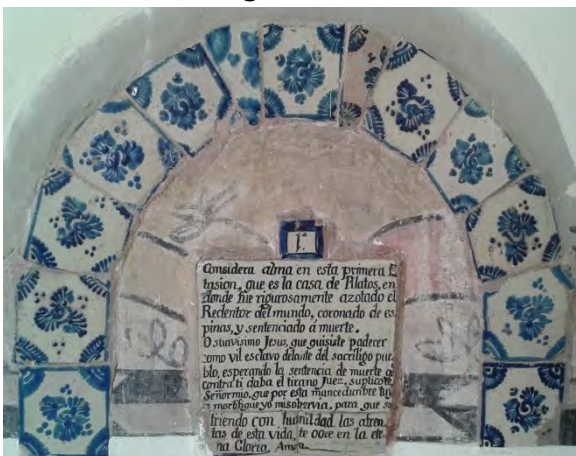 1.
Considera alma en esta primera E
tasion, que es la casa de Pilatos, en
donde fue rigurosamente azotado el
Redentor del mundo, coronado de es
pinas, y sentenciado à muerte.
O suavisimo Jesus, que quisiste padecer
como vil esclavo delante del sacrilego pue
blo, esperando la sentencia de muerte q
contra ti daba el tirano Juez, suplicote,
Señor mio, que por esta mancedumbre tuy
a mortifique yo mi sobervia, para que su
friendo con humildad las afren
tas de esta vida, te goce en la ete
na Gloria, Amen.